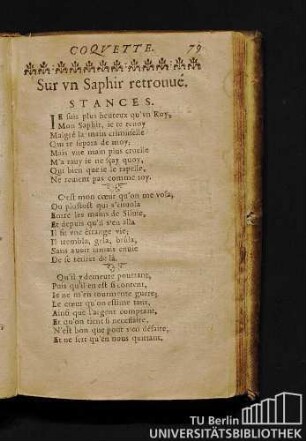 COQVETTE. 79
Sur vn Saphir retrouué.
STANCES.
IE suis plus heureux qu'vn Roy,
Mon Saphir, ie te reuoy
Malgré la main criminelle
Qui te separa de moy,
Mais vne main plus cruelle
M'a rauy ie ne sçay quoy,
Qui bien que ie le rapelle,
Ne reuient pas comme toy.
C'est mon cœur qu'on me vola,
Ou plustost qui s'enuola
Entre les mains de Siluie,
Et depuis qu'il s'en alla
Il se vne étrange vie;
Il trembla, gela, brûla,
Sans auoir iamais enuie
De se retirer de là.
Qu'il y demeure pourtant,
Puis qu'il en est si content,
Ie ne m'en tourmente guere;
Le cœur qu'on estime tant,
Ainsi que l'argent comptant,
Et qu'on tient si necessaire,
N'est bon que pour s'en défaire,
Et ne sert qu'en nous quittant.
TU Berlin
UNIVERSITÄTSBIBLIOTHEK